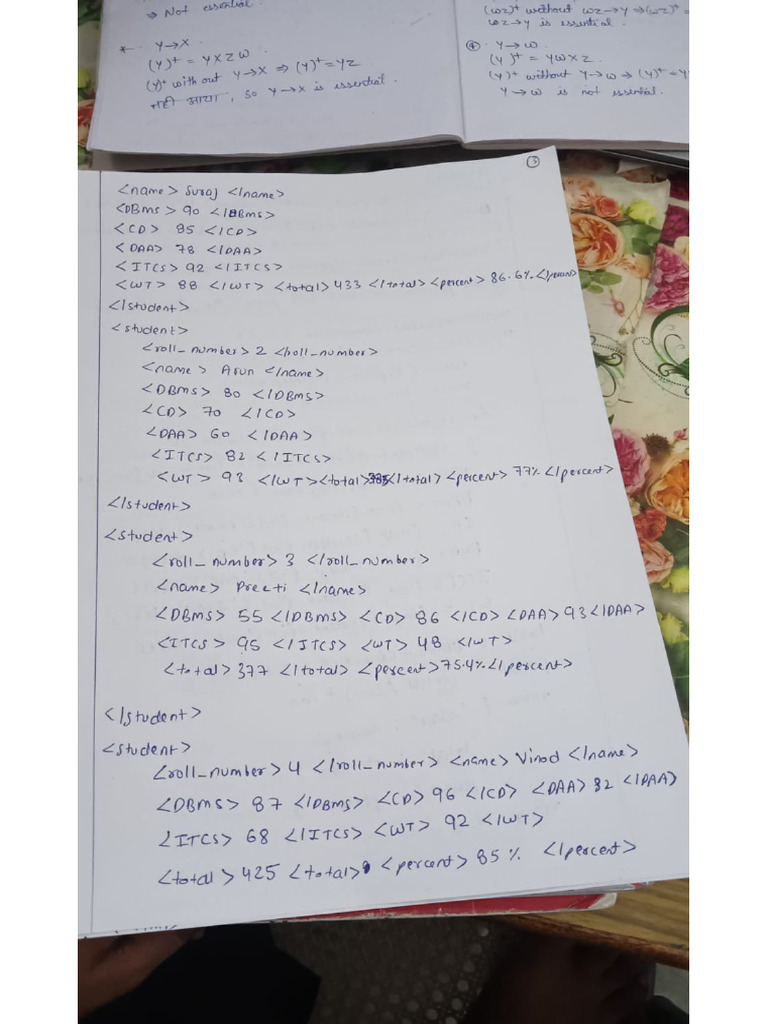 ⇒ Not essential.
* Y→X.
(Y)⁺ = YXZW
(Y)⁺ with out Y→X ⇒ (Y)⁺ = YZ
नही आया, so Y→X is essential.
(WZ)⁺ without WZ→Y ⇒ (WZ)⁺ =
WZ→Y is essential.
④ Y→W.
(Y)⁺ = YWXZ.
(Y)⁺ without Y→W ⇒ (Y)⁺ = Y
Y→W is not essential.
③
<name> Suraj </name>
<DBMS> 90 </DBMS>
<CD> 85 </CD>
<DAA> 78 </DAA>
<ITCS> 92 </ITCS>
<WT> 88 </WT> <total> 433 </total> <percent> 86.6% </percent>
</student>
<student>
<roll_number> 2 </roll_number>
<name> Arun </name>
<DBMS> 80 </DBMS>
<CD> 70 </CD>
<DAA> 60 </DAA>
<ITCS> 82 </ITCS>
<WT> 93 </WT> <total> 385 </total> <percent> 77% </percent>
</student>
<student>
<roll_number> 3 </roll_number>
<name> Preeti </name>
<DBMS> 55 </DBMS> <CD> 86 </CD> <DAA> 93 </DAA>
<ITCS> 95 </ITCS> <WT> 48 </WT>
<total> 377 </total> <percent> 75.4% </percent>
</student>
<student>
<roll_number> 4 </roll_number> <name> Vinod </name>
<DBMS> 87 </DBMS> <CD> 96 </CD> <DAA> 82 </DAA>
<ITCS> 68 </ITCS> <WT> 92 </WT>
<total> 425 <total> <percent> 85% </percent>